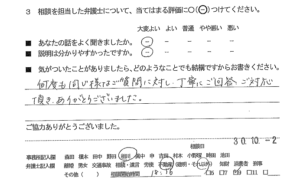 3 相談を担当した弁護士について、当てはまる評価に○(㊀)つけてください。
大変よい よい 普通 やや悪い 悪い
■ あなたの話をよく聞きましたか。
■ 説明は分かりやすかったですか。
■ 気がついたことがありましたら、どのようなことでも結構ですからお書きください。
何度も同じ様なご質問に対し、丁寧にご回答、ご対応
頂き、ありがとうございました。
ご協力ありがとうございました。
相談日
30.10.-2
事務所記入欄
弁護士記入欄
その他(